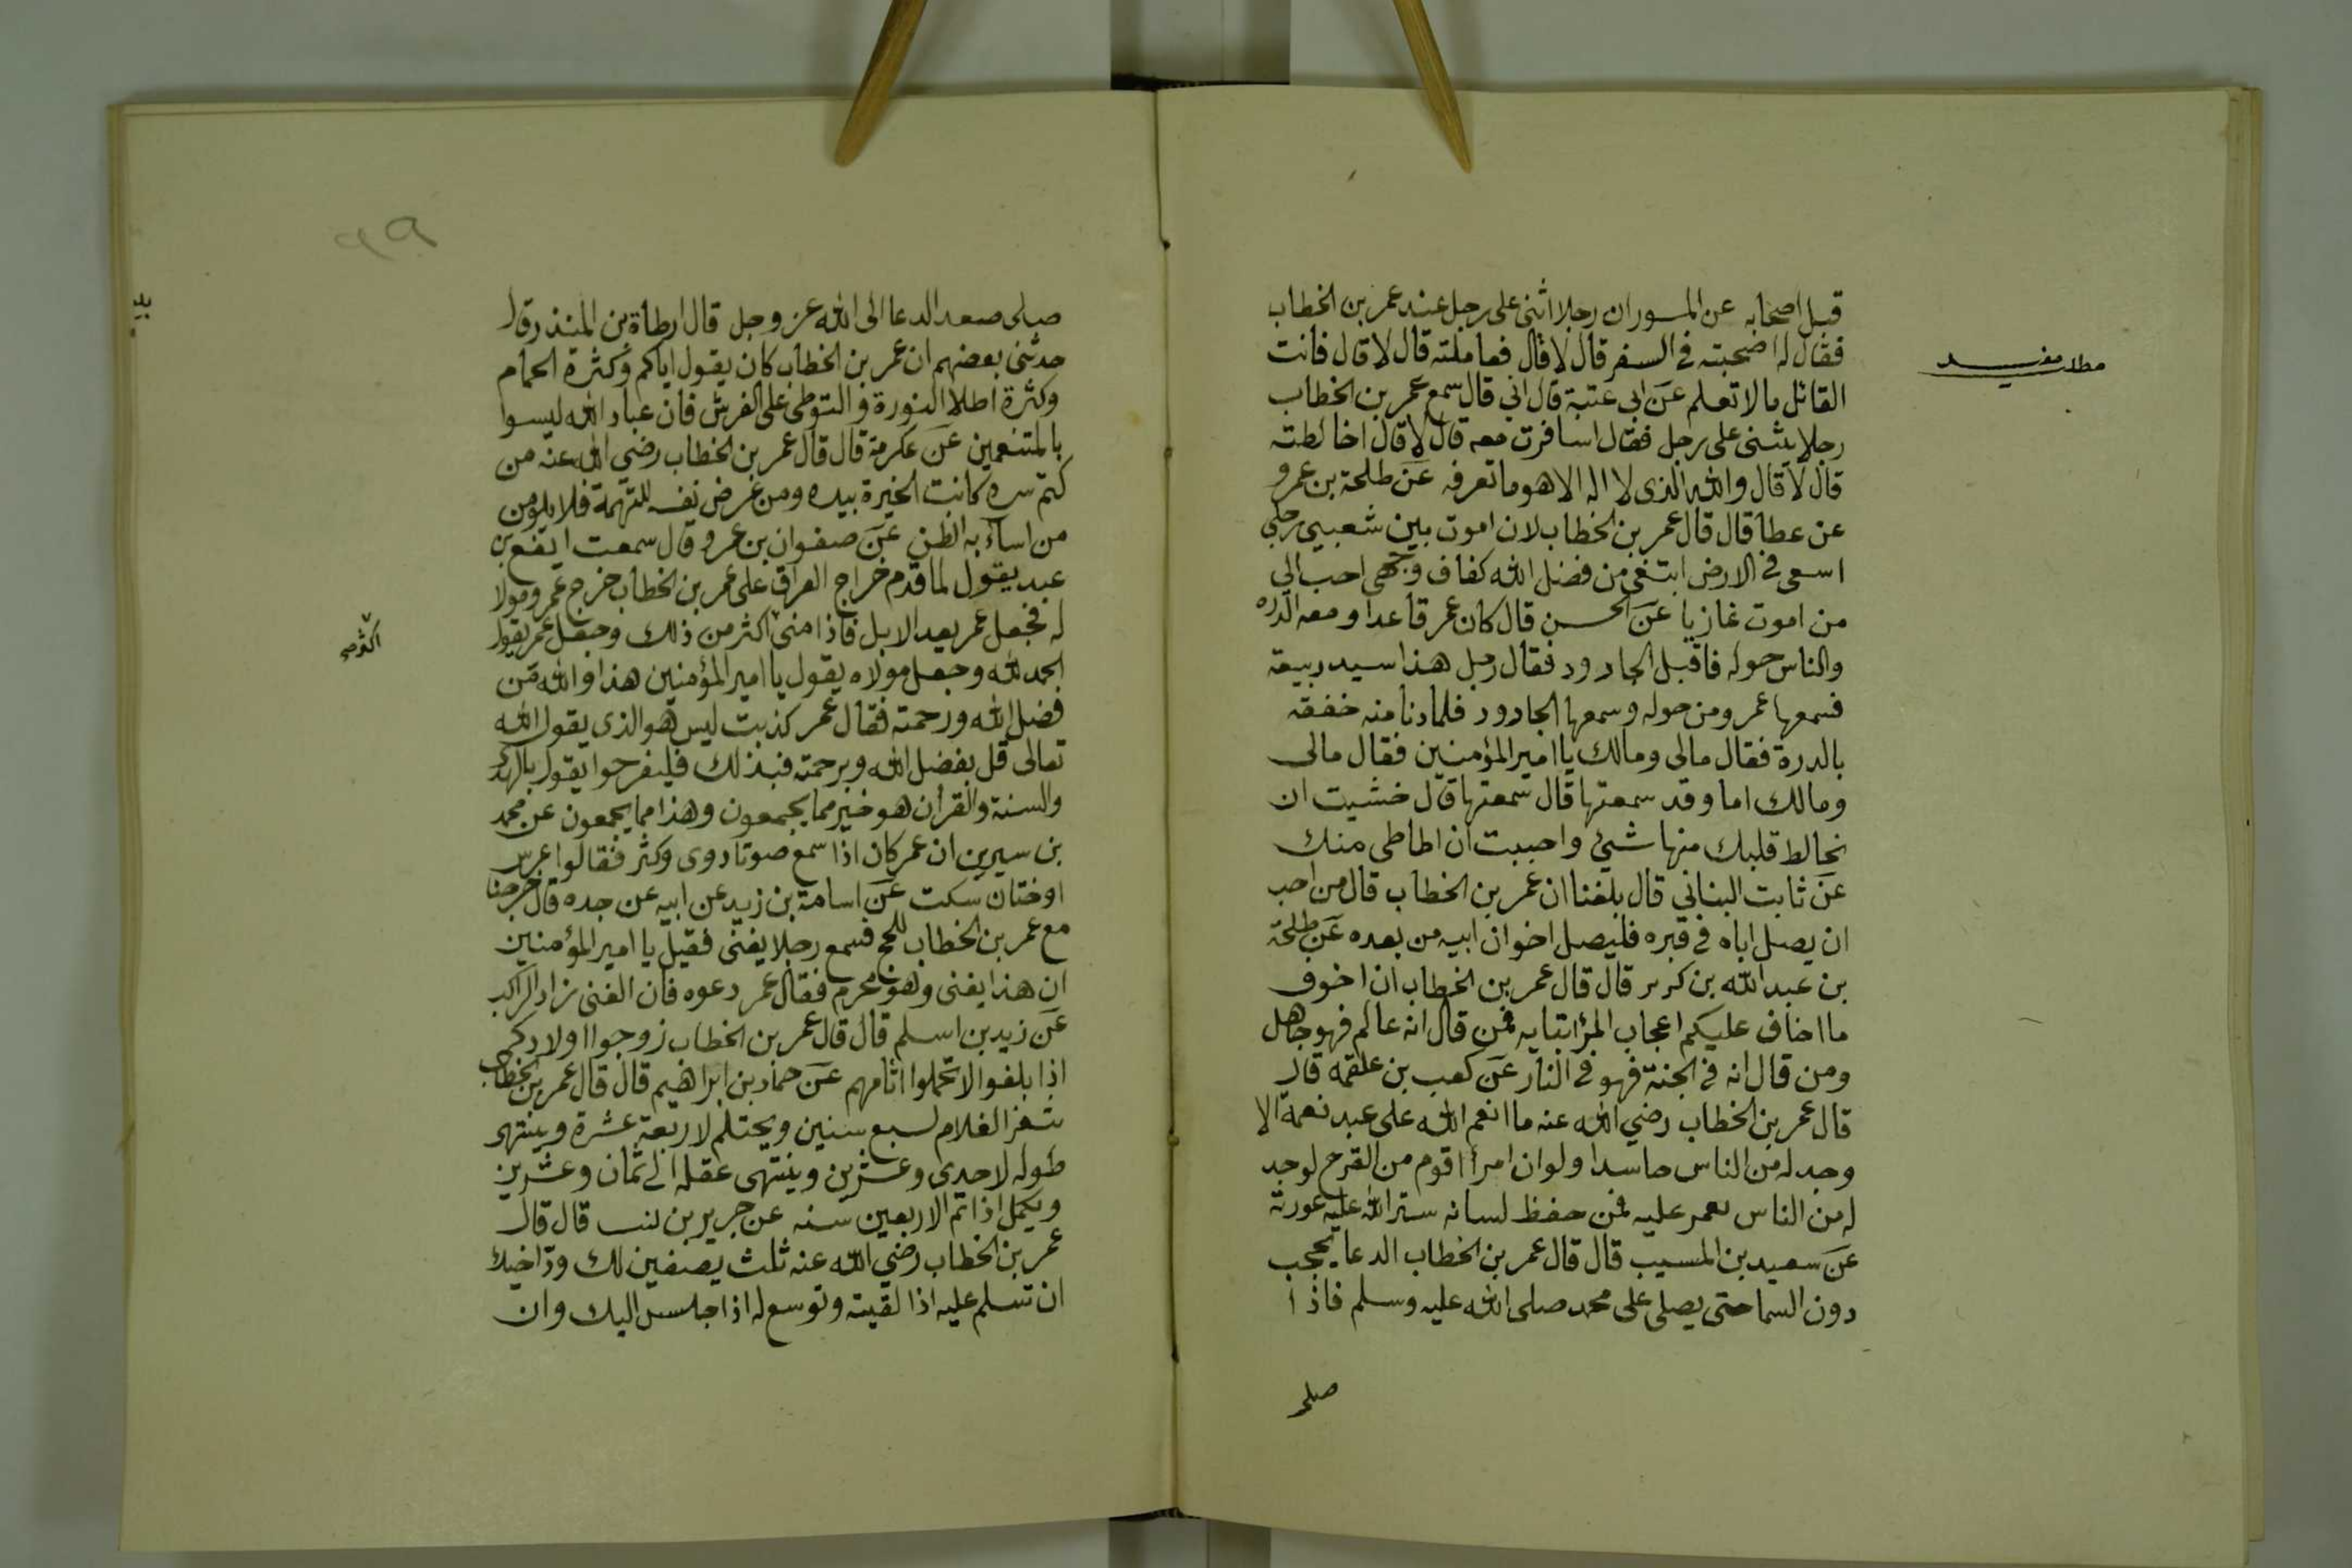 قبل اصحابه عن المسور ان رجلا اثنى على رجل عند عمر بن الخطاب
فقال له اصحبته في السفر قال لا قال فعاملته قال لا قال فانت
مطلب مفيد
القائل مالا تعلم عن ابي عتبة قال ابي قال سمع عمر بن الخطاب
رجلا يثنى على رجل فقال اسافرت معه قال لا قال اخالطته
قال لا قال والله الذى لا اله الا هو ما تعرفه عن طلحة بن عمرو
عن عطا قال قال عمر بن الخطاب لان اموت بين شعبي رحلي
اسعى في الارض ابتغي من فضل الله كفاف وجهى احب الي
من اموت غازيا عن الحسن قال كان عمر قاعدا ومعه الدره
والناس حوله فاقبل الجارود فقال رجل هذا سيد ربيعة
فسمعها عمر ومن حوله وسمعها الجارود فلما دنا منه خفقه
بالدرة فقال مالى ومالك يا امير المؤمنين فقال مالى
ومالك اما وقد سمعتها قال سمعتها قال خشيت ان
نخالط قلبك منها شيئ واحببت ان اطاطى منك
عن ثابت البناني قال بلغنا ان عمر بن الخطاب قال من احب
ان يصل اباه في قبره فليصل اخوان ابيه من بعده عن طلحة
بن عبد الله بن كرىر قال قال عمر بن الخطاب ان اخوف
ما اخاف عليكم اعجاب المرٔ ابتايه فمن قال انه عالم فهو جاهل
ومن قال انه في الجنة فهو في النار عن كعب بن علقمه قال
قال عمر بن الخطاب رضي الله عنه ما انعم الله على عبد نعمة الا
وجد له من الناس حاسدا ولو ان امرأ اقوم من القرح لوجد
له من الناس فمن حفظ لسانه ستر الله عليه عورته
عن سعيد بن المسيب قال قال عمر بن الخطاب الدعا يحجب
دون السما حتى يصلى على محمد صلى الله عليه وسلم فاذا
صلى
٩٩
صلى صعد الدعا الى الله عز وجل قال ارطاة بن المنذر قال
حدثنى بعضهم ان عمر بن الخطاب كان يقول اياكم وكثرة الحمام
وكثرة اطلا النورة والتوطى على الفرش فان عباد الله ليسوا
بالمتنعمين عن عكرمة قال قال عمر بن الخطاب رضي الله عنه من
كتم سره كانت الخيرة بيده ومن عرض نفسه للتهمة فلا يلومن
من اسآء به الظن عن صفوان بن عمرو قال سمعت ايفع بن
عبد يقول لما قدم خراج العراق على عمر بن الخطاب خرج عمر ومولا
له فجعل عمر يعد الابل فاذا منى اكثر من ذلك وجعل عمر يقول
الحمد لله وجعل مولاه يقول يا امير المؤمنين هذا والله من
فضل الله ورحمته فقال عمر كذبت ليس هو الذى يقول الله
تعالى قل بفضل الله وبرحمته فبذلك فليفرحوا يقول بالهدى
والسنة والقرأن هو خير مما يجمعون وهذا مما يجمعون عن محمد
بن سيرين ان عمر كان اذا سمع صوتا دوى وكثر فقالوا عرس
او ختان سكت عن اسامة بن زيد عن ابيه عن جده قال خرجنا
مع عمر بن الخطاب للحج فسمع رجلا يغنى فقيل يا امير المؤمنين
ان هذا يغنى وهو محرم فقال عمر دعوه فان الغنى زاد الراكب
عن زيد بن اسلم قال قال عمر بن الخطاب زوجوا اولادكم
اذا بلغوا لا تحملوا اثامهم عن حماد بن ابراهيم قال قال عمر بن الخطاب
ىثغر الغلام لسبع سنين ويحتلم لاربعة عشرة وينتهى
طوله لاحدى وعشرين وينتهى عقله الى ثمان وعشرين
ويكمل اذا تم الاربعين سنه عن جرير بن قال قال
عمر بن الخطاب رضي الله عنه ثلث يصفين لك ودّ اخيك
ان تسلم عليه اذا لقيته وتوسع له اذا جلس اليك وان